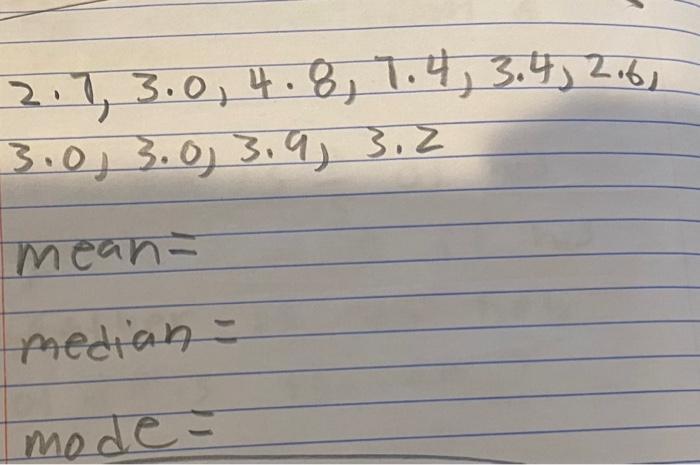 2.7, 3.0, 4.8, 7.4, 3.4, 2.6,
3.0, 3.0, 3.9, 3.2
mean=
median=
mode=